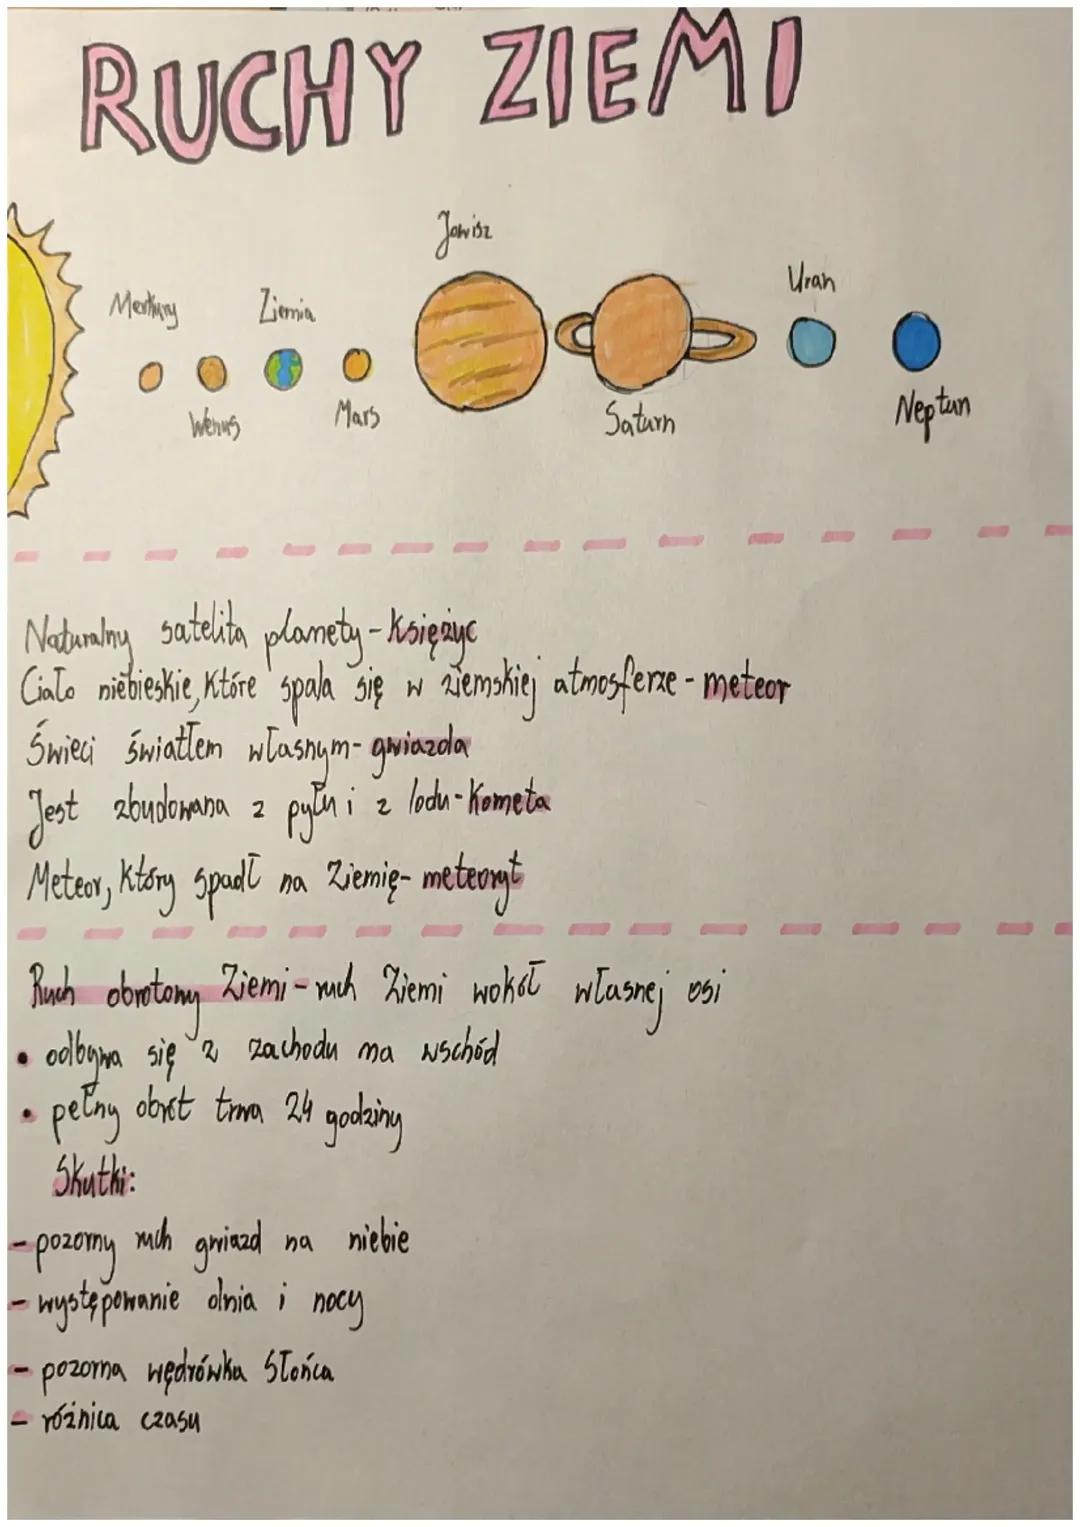 RUCHY ZIEMI
Jowisz
Uran
Merkury Ziemia
Wenus Mars Saturn Neptun
Naturalny satelita planety - Księżyc
Ciało niebieskie, które spala się w ziemskiej atmosferze - meteor
Świeci światłem własnym - gwiazda
Jest zbudowana z pyłu i z lodu - Kometa
Meteor, który spadł na Ziemię - meteoryt
Ruch obrotowy Ziemi - ruch Ziemi wokół własnej osi
• odbywa się z zachodu na wschód
• pełny obrót trwa 24 godziny
Skutki:
- pozorny ruch gwiazd na niebie
- występowanie dnia i nocy
- pozorna wędrówka Słońca
- różnica czasu